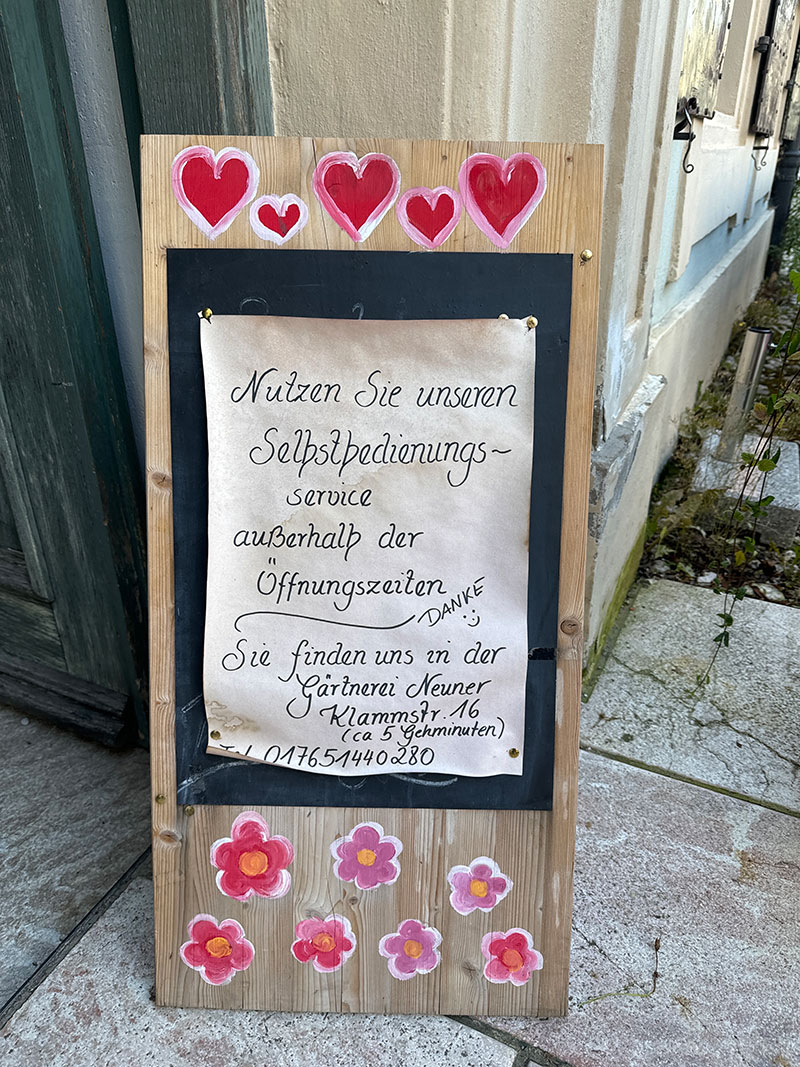 Nutzen Sie unseren
Selbstbedienungs~
service
außerhalb der
Öffnungszeiten
DANKE
:)
Sie finden uns in der
Gärtnerei Neuner
Klammstr. 16
(ca 5 Gehminuten)
Tel 017651440280